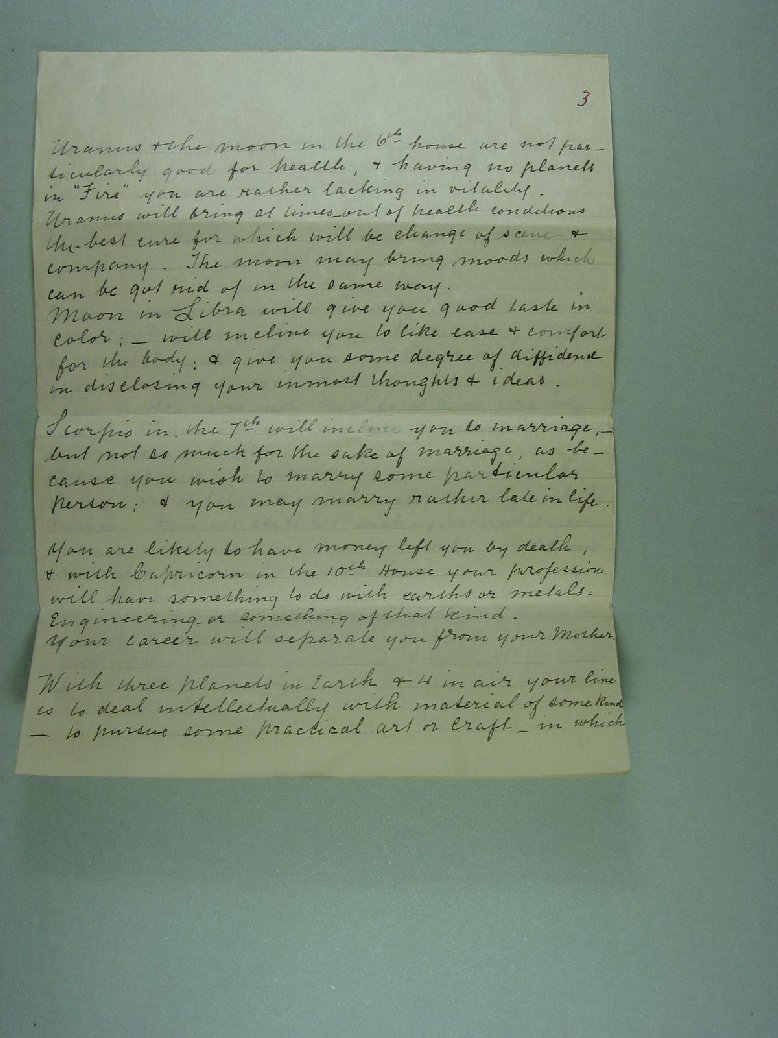 3
Uranus & the moon in the 6th house are not par-
ticularly good for health, & having no planets
in "Fire" you are rather lacking in vitality.
Uranus will bring at times out of health conditions
the best cure for which will be change of scene &
company. The moon may bring moods which
can be got rid of in the same way.
Moon in Libra will give you good taste in
color; — will incline you to like ease & comfort
for the body; & give you some degree of diffidence
in disclosing your inmost thoughts & ideas.
Scorpio in the 7th will incline you to marriage, —
but not so much for the sake of marriage, as be-
cause you wish to marry some particular
person; & you may marry rather late in life.
You are likely to have money left you by death,
& with Capricorn in the 10th House your profession
will have something to do with earths or metals.
Engineering or something of that kind.
Your career will separate you from your Mother.
With three planets in Earth & 4 in air your line
is to deal intellectually with material of some kind
— to pursue some practical art or Craft — in which